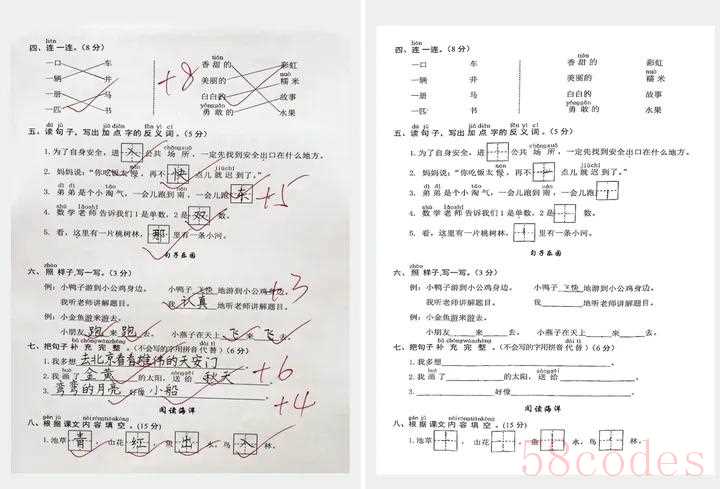 四、连一连。(8分)
一口 车 香甜的 彩虹
一辆 井 美丽的 糯米
一册 马 白白的 故事
一匹 书 勇敢的 水果
+8
五、读句子,写出加点字的反义词。(5分)
1.为了自身安全,进入公共场所,一定先找到安全出口在什么地方。
2.妈妈说:“你吃饭太慢,再不快点儿就迟到了。”
3.弟弟是个小淘气,一会儿跑到南,一会儿跑东
4.数学老师告诉我们1是单数,2是双数。
5.看,这里有一片桃树林,那里有一条小河。
+5
句子乐园
六、照样子,写一写。(3分)
例:小鸭子游到小公鸡身边。 小鸭子飞快地游到小公鸡身边。
我听老师讲解题目。 我认真地听老师讲解题目。
例:小金鱼游来游去。
小朋友跑来跑去。 小燕子在天上飞来飞去。
+3
七、把句子补充完整。(不会写的字用拼音代替)(6分)
1.我多想去北京看看雄伟的天安门
2.我画了金黄的太阳,送给秋天
3.弯弯的月亮好像小船
+6
+4
阅读海洋
八、根据课文内容填空。(15分)
1.池草青,山花红,鱼出水,鸟入林。
四、连一连。(8分)
一口 车 香甜的 彩虹
一辆 井 美丽的 糯米
一册 马 白白的 故事
一匹 书 勇敢的 水果
五、读句子,写出加点字的反义词。(5分)
1.为了自身安全,进公共场所,一定先找到安全出口在什么地方。
2.妈妈说:“你吃饭太慢,再不点儿就迟到了。”
3.弟弟是个小淘气,一会儿跑到南,一会儿跑
4.数学老师告诉我们1是单数,2是数。
5.看,这里有一片桃树林,里有一条小河。
句子乐园
六、照样子,写一写。(3分)
例:小鸭子游到小公鸡身边。 小鸭子飞快地游到小公鸡身边。
我听老师讲解题目。 我地听老师讲解题目。
例:小金鱼游来游去。
小朋友来去。 小燕子在天上来去。
七、把句子补充完整。(不会写的字用拼音代替)(6分)
1.我多想
2.我画了的太阳,送给
3.好像
阅读海洋
八、根据课文内容填空。(15分)
1.池草,山花,鱼水,鸟林。
58codes